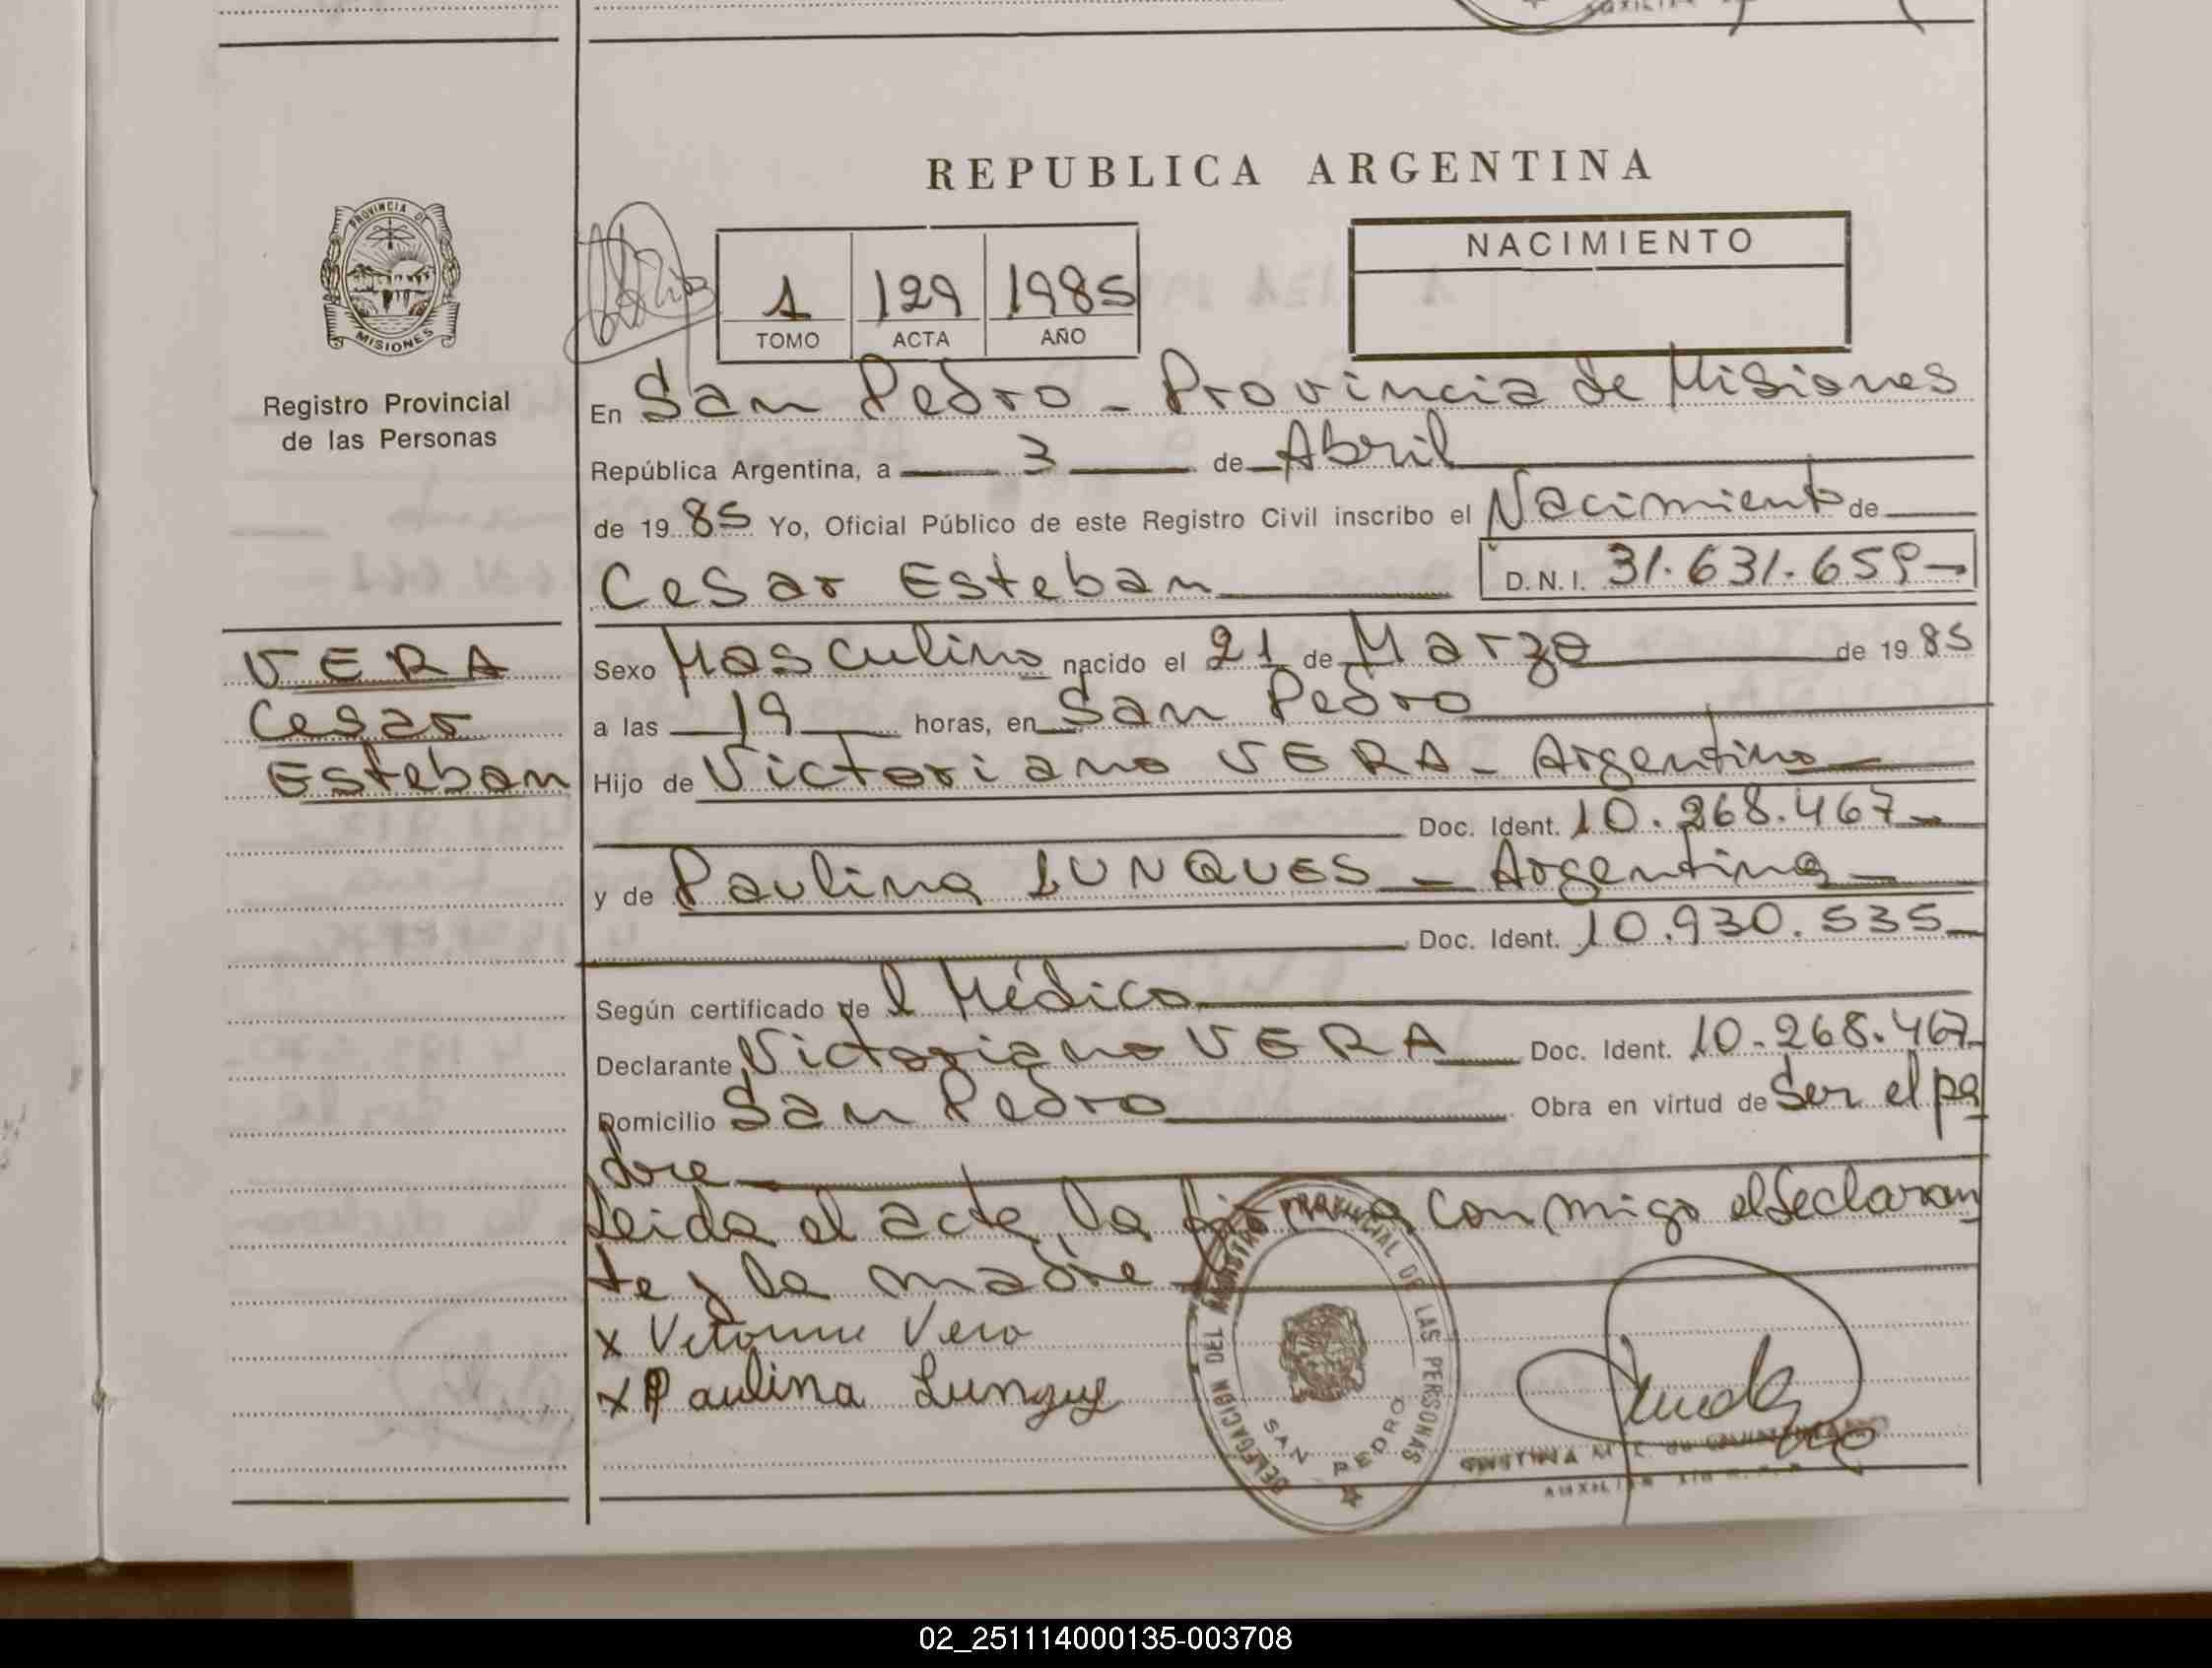 REPUBLICA ARGENTINA
PROVINCIA DE
MISIONES
Registro Provincial
de las Personas
1 129 1985
TOMO ACTA AÑO
NACIMIENTO
En San Pedro - Provincia de Misiones
República Argentina, a 3 de Abril
de 1985 Yo, Oficial Público de este Registro Civil inscribo el Nacimiento de
Cesar Esteban D.N.I. 31.631.659
VERA
Cesar
Esteban
Sexo Masculino nacido el 21 de Marzo de 1985
a las 19 horas, en San Pedro
Hijo de Victoriano VERA - Argentino
Doc. Ident. 10.268.467
y de Paulina LUNQUES - Argentina
Doc. Ident. 10.930.535
Según certificado del Médico
Declarante Victoriano VERA Doc. Ident. 10.268.467
Domicilio San Pedro Obra en virtud de Ser el pa
dre
Leida el acta, la firma con migo el declaran
te y la madre
x Vera
x Paulina
DELEGACION DEL REGISTRO PROVINCIAL DE LAS PERSONAS
SAN PEDRO
AUXILIAR
02_251114000135-003708